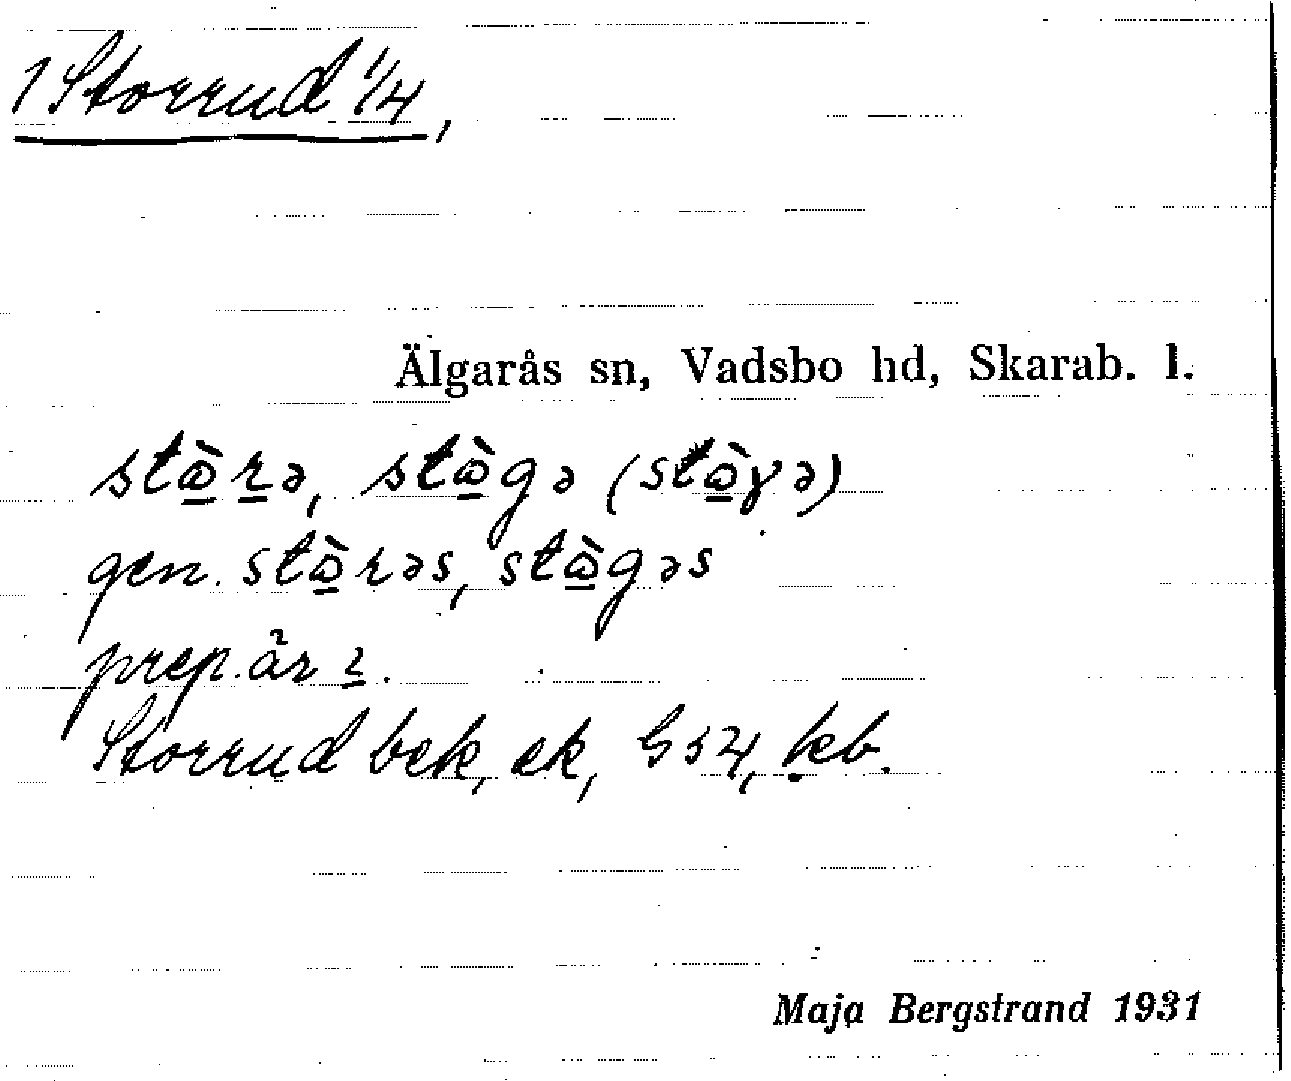 1 Storrud 1/4,
Älgarås sn, Vadsbo hd, Skarab. l.
stɷ̱̀ṟə, stɷ̱̀gə (stɷ̱̀γə)
gen. stɷ̱̀rəs, stɷ̱̀gəs
prep. är
Storrud bek, ek, G 52, kb.
Maja Bergstrand 1931